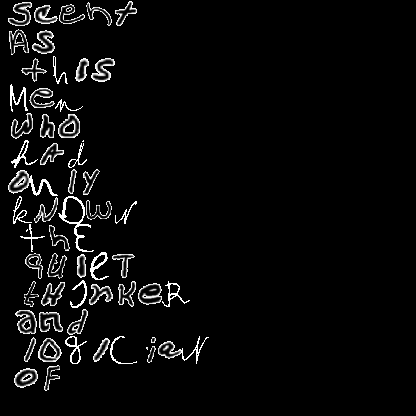 scent
As
this
Men
who
hAd
only
kNOwN
thE
quieT
tHinKeR
and
logiCieN
OF